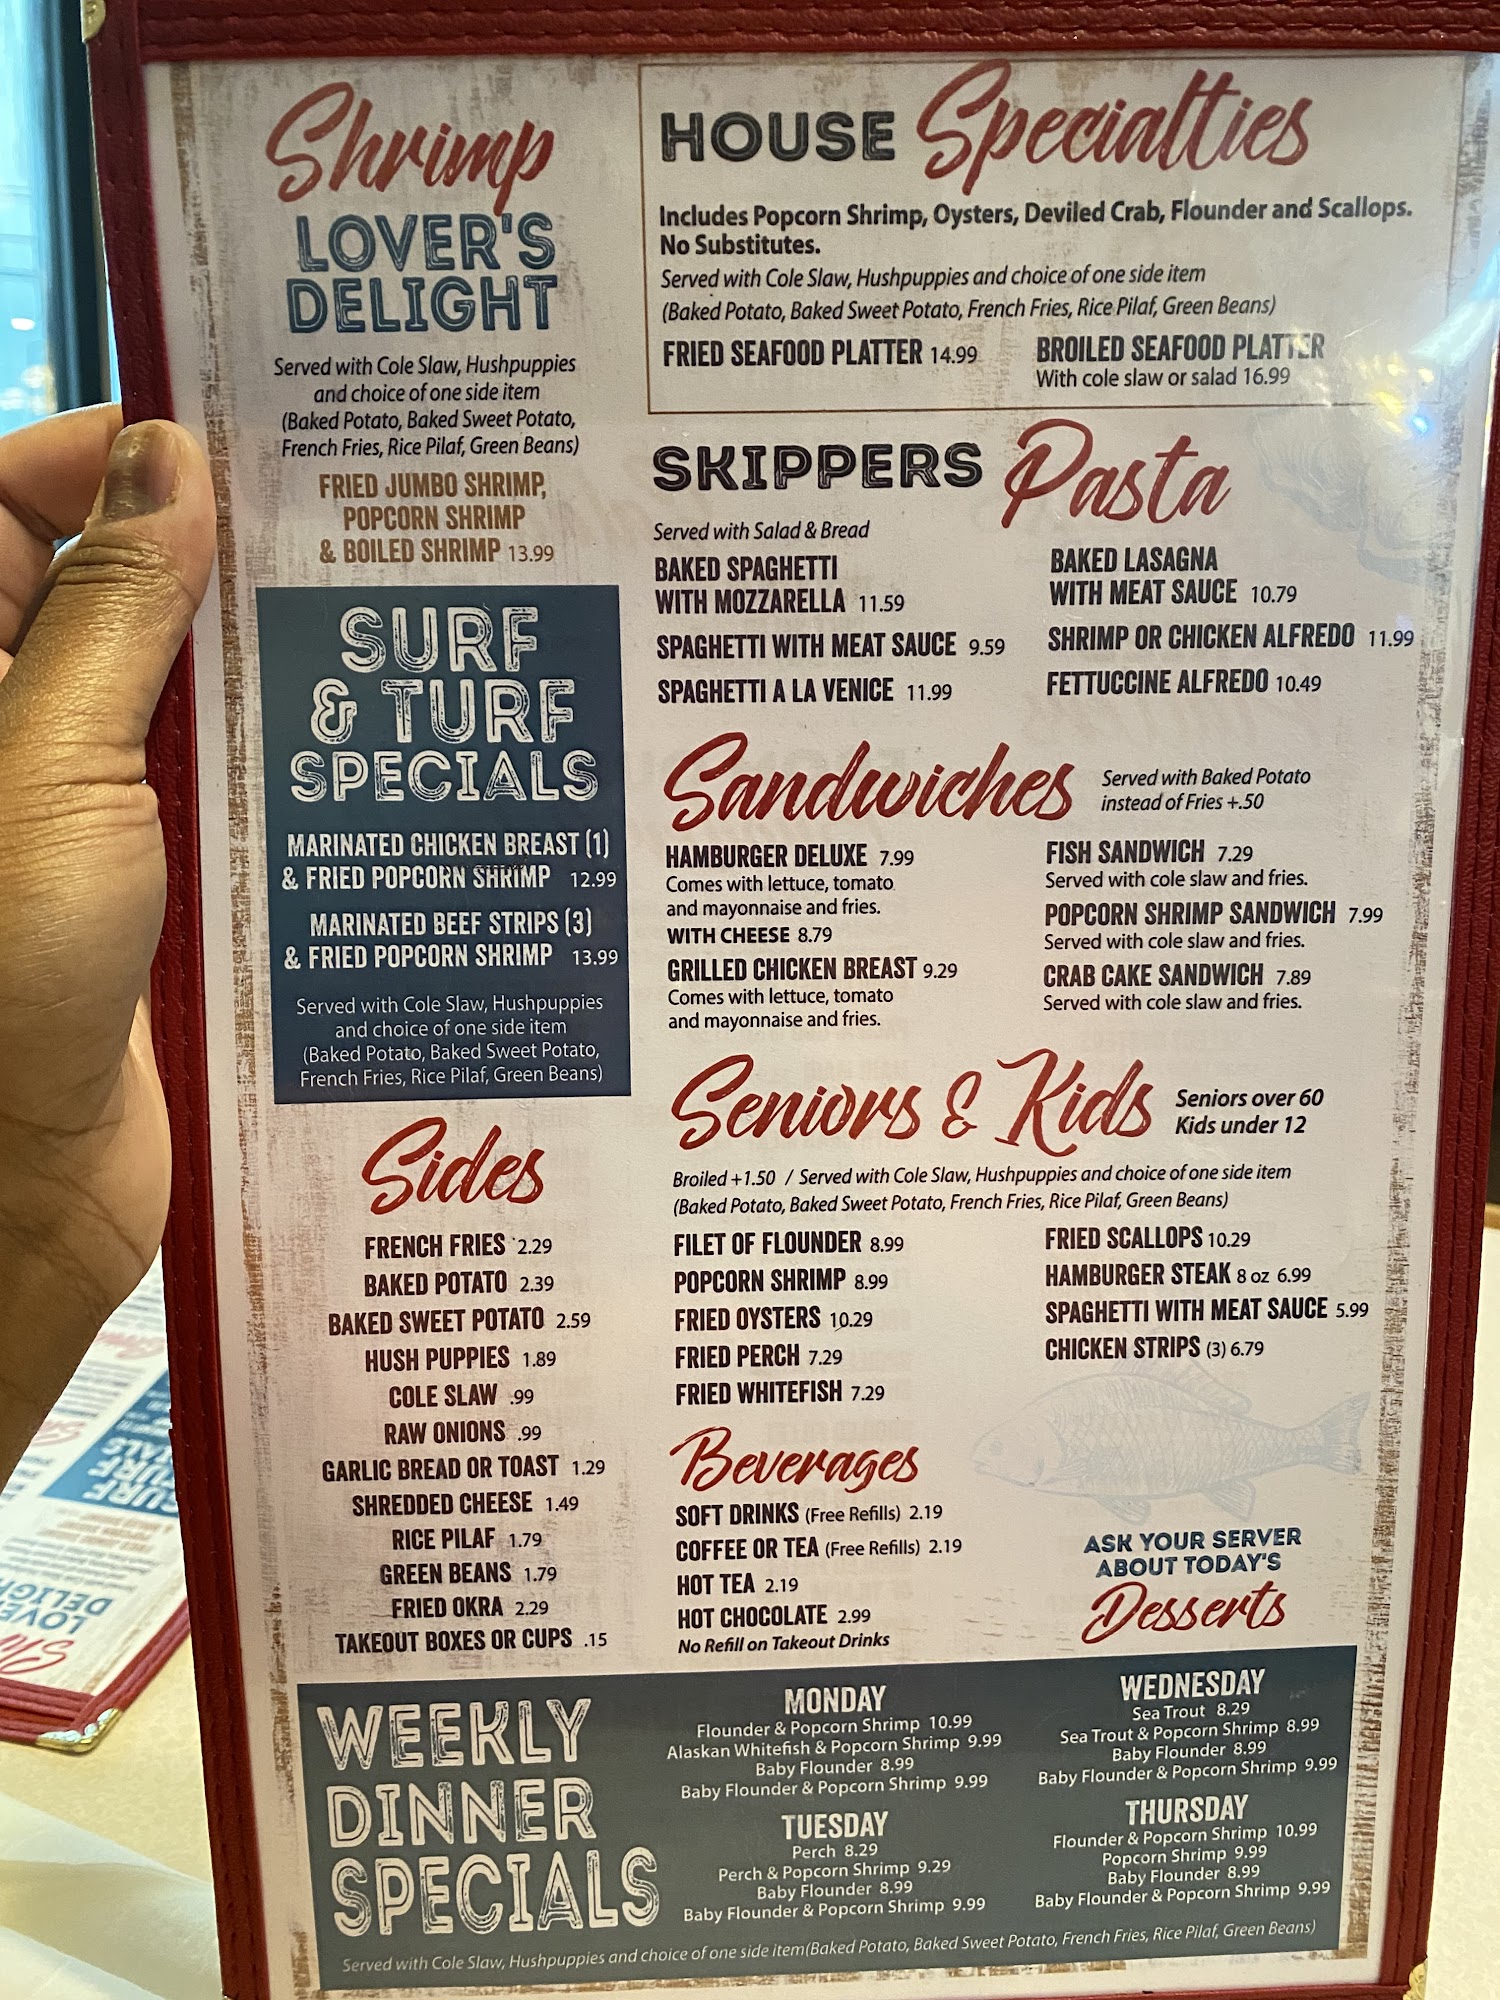 Shrimp
LOVER'S
DELIGHT
Served with Cole Slaw, Hushpuppies
and choice of one side item
(Baked Potato, Baked Sweet Potato,
French Fries, Rice Pilaf, Green Beans)
FRIED JUMBO SHRIMP,
POPCORN SHRIMP
& BOILED SHRIMP 13.99
SURF
& TURF
SPECIALS
MARINATED CHICKEN BREAST (1)
& FRIED POPCORN SHRIMP 12.99
MARINATED BEEF STRIPS (3)
& FRIED POPCORN SHRIMP 13.99
Served with Cole Slaw, Hushpuppies
and choice of one side item
(Baked Potato, Baked Sweet Potato,
French Fries, Rice Pilaf, Green Beans)
Sides
FRENCH FRIES 2.29
BAKED POTATO 2.39
BAKED SWEET POTATO 2.59
HUSH PUPPIES 1.89
COLE SLAW .99
RAW ONIONS .99
GARLIC BREAD OR TOAST 1.29
SHREDDED CHEESE 1.49
RICE PILAF 1.79
GREEN BEANS 1.79
FRIED OKRA 2.29
TAKEOUT BOXES OR CUPS .15
HOUSE Specialties
Includes Popcorn Shrimp, Oysters, Deviled Crab, Flounder and Scallops.
No Substitutes.
Served with Cole Slaw, Hushpuppies and choice of one side item
(Baked Potato, Baked Sweet Potato, French Fries, Rice Pilaf, Green Beans)
FRIED SEAFOOD PLATTER 14.99
BROILED SEAFOOD PLATTER
With cole slaw or salad 16.99
SKIPPERS Pasta
Served with Salad & Bread
BAKED SPAGHETTI
WITH MOZZARELLA 11.59
SPAGHETTI WITH MEAT SAUCE 9.59
SPAGHETTI A LA VENICE 11.99
BAKED LASAGNA
WITH MEAT SAUCE 10.79
SHRIMP OR CHICKEN ALFREDO 11.99
FETTUCCINE ALFREDO 10.49
Sandwiches
Served with Baked Potato
instead of Fries +.50
HAMBURGER DELUXE 7.99
Comes with lettuce, tomato
and mayonnaise and fries.
WITH CHEESE 8.79
GRILLED CHICKEN BREAST 9.29
Comes with lettuce, tomato
and mayonnaise and fries.
FISH SANDWICH 7.29
Served with cole slaw and fries.
POPCORN SHRIMP SANDWICH 7.99
Served with cole slaw and fries.
CRAB CAKE SANDWICH 7.89
Served with cole slaw and fries.
Seniors & Kids
Seniors over 60
Kids under 12
Broiled +1.50 / Served with Cole Slaw, Hushpuppies and choice of one side item
(Baked Potato, Baked Sweet Potato, French Fries, Rice Pilaf, Green Beans)
FILET OF FLOUNDER 8.99
POPCORN SHRIMP 8.99
FRIED OYSTERS 10.29
FRIED PERCH 7.29
FRIED WHITEFISH 7.29
FRIED SCALLOPS 10.29
HAMBURGER STEAK 8 oz 6.99
SPAGHETTI WITH MEAT SAUCE 5.99
CHICKEN STRIPS (3) 6.79
Beverages
SOFT DRINKS (Free Refills) 2.19
COFFEE OR TEA (Free Refills) 2.19
HOT TEA 2.19
HOT CHOCOLATE 2.99
No Refill on Takeout Drinks
ASK YOUR SERVER
ABOUT TODAY'S
Desserts
WEEKLY
DINNER
SPECIALS
MONDAY
Flounder & Popcorn Shrimp 10.99
Alaskan Whitefish & Popcorn Shrimp 9.99
Baby Flounder 8.99
Baby Flounder & Popcorn Shrimp 9.99
TUESDAY
Perch 8.29
Perch & Popcorn Shrimp 9.29
Baby Flounder 8.99
Baby Flounder & Popcorn Shrimp 9.99
WEDNESDAY
Sea Trout 8.29
Sea Trout & Popcorn Shrimp 8.99
Baby Flounder 8.99
Baby Flounder & Popcorn Shrimp 9.99
THURSDAY
Flounder & Popcorn Shrimp 10.99
Popcorn Shrimp 9.99
Baby Flounder 8.99
Baby Flounder & Popcorn Shrimp 9.99
Served with Cole Slaw, Hushpuppies and choice of one side item(Baked Potato, Baked Sweet Potato, French Fries, Rice Pilaf, Green Beans)